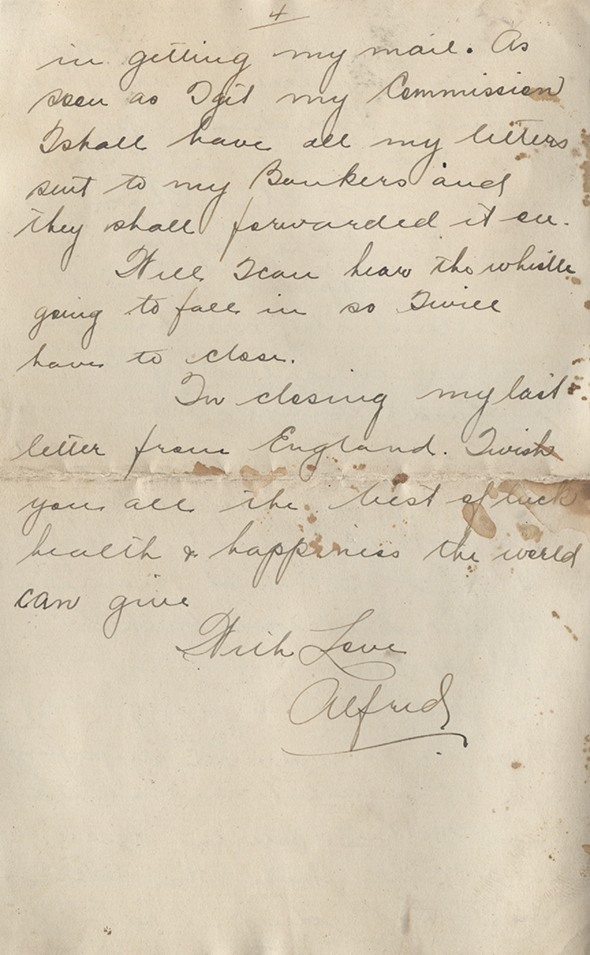 4
in getting my mail. As
soon as I git my Commission
I shall have all my letters
sent to my Bankers and
they shall forwarded it on.
Well I can hear the whistle
going to fall in so I will
have to close.
In closing my last
letter from England. I wish
you all the best of luck
health & happiness the world
can give
With Love
Alfred